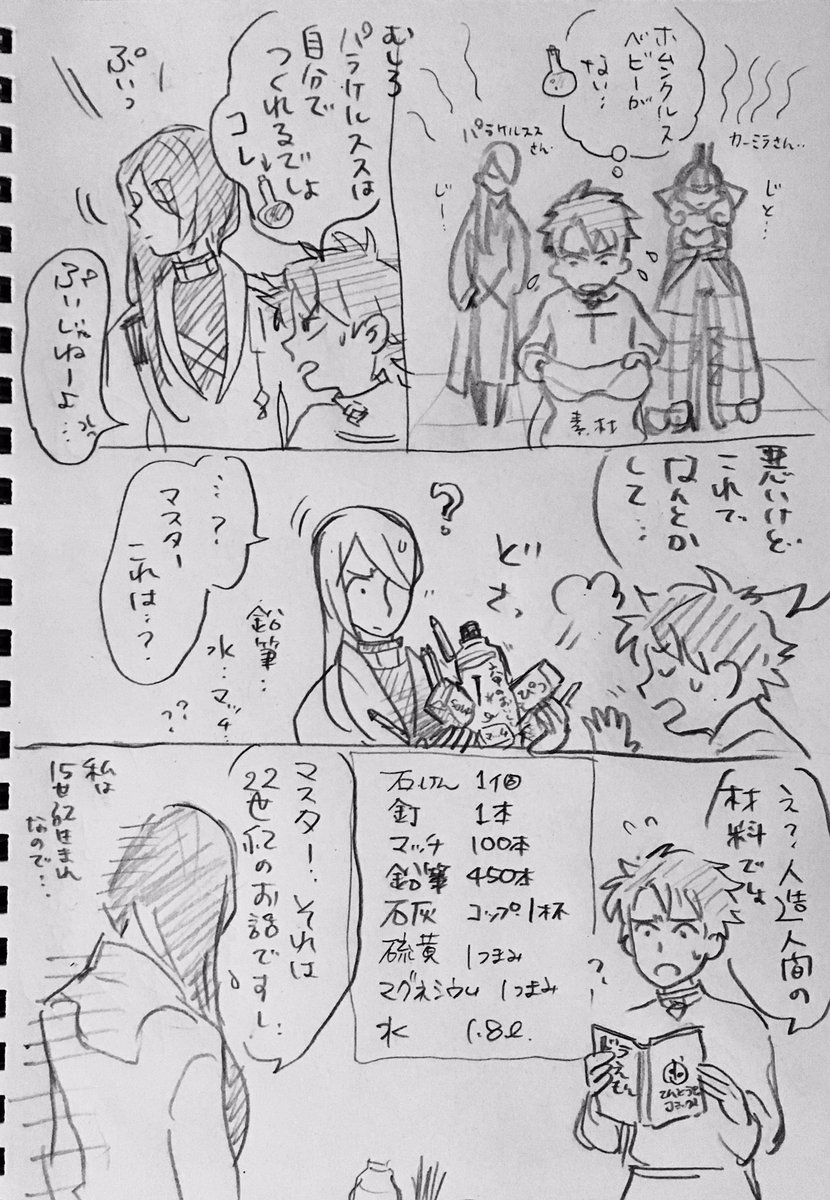 ホムンクルス
ベビーが
ない…
カーミラさん…
じと…
パラケルスス
さん
じー…
素材
むしろ
パラケルススは
自分で
つくれるでしょ
コレ
ぷいっ
ぷいじゃねーよ…
悪いけど
これで
なんとか
して…
どさっ
?
…?
マスター
これは…?
鉛筆…
水…マッチ…
??
え?人造人間の
材料でしょ
?
ドラえもん
てんとう虫
コミックス
石けん 1個
釘 1本
マッチ 100本
鉛筆 450本
石灰 コップ1杯
硫黄 1つまみ
マグネシウム 1つまみ
水 1.8ℓ.
マスター…それは
22世紀のお話ですし…
私は
15世紀生まれ
なので…